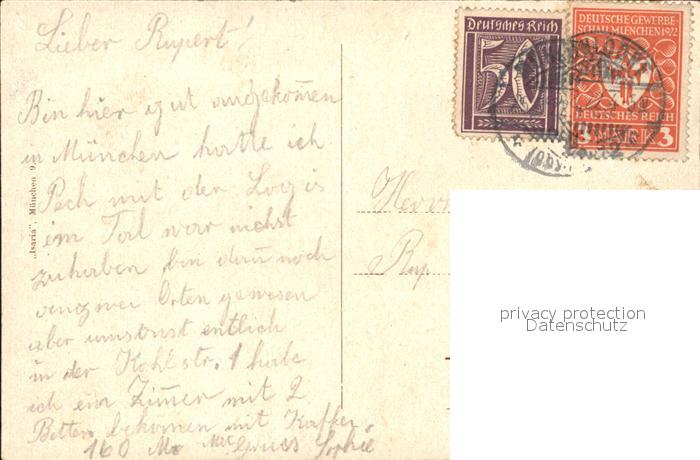 Lieber Rupert!
Bin hier gut angekommen
in München hatte ich
Pech mit der Logis
im Tal war nichst
zuhaben bin dann noch
anzwei Orten gewesen
aber umsonst entlich
in der Kohlstr. 1 habe
ich ein Zimmer mit 2
Betten bekommen mit Kaffee
160 M
Gruss Sophie
"Isaria", München 9.
Deutsches Reich
50
DEUTSCHE GEWERBE
SCHAU MÜNCHEN 1922
DEUTSCHES REICH
3 MARK 3
Herrn
Rup
privacy protection
Datenschutz